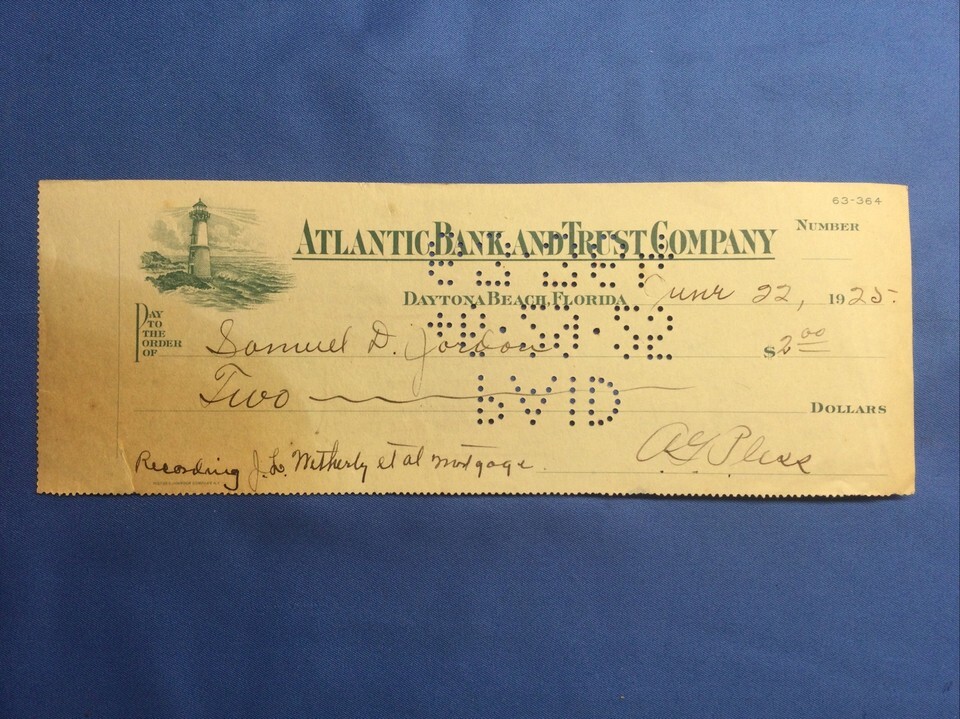 63-364
ATLANTIC BANK AND TRUST COMPANY
NUMBER
DAYTONA BEACH, FLORIDA June 22, 1925.
PAY TO THE ORDER OF Samuel D. Jordon $2 00
Two DOLLARS
PAID
Recording J. L. Witherly et al mortgage.
A G Pless